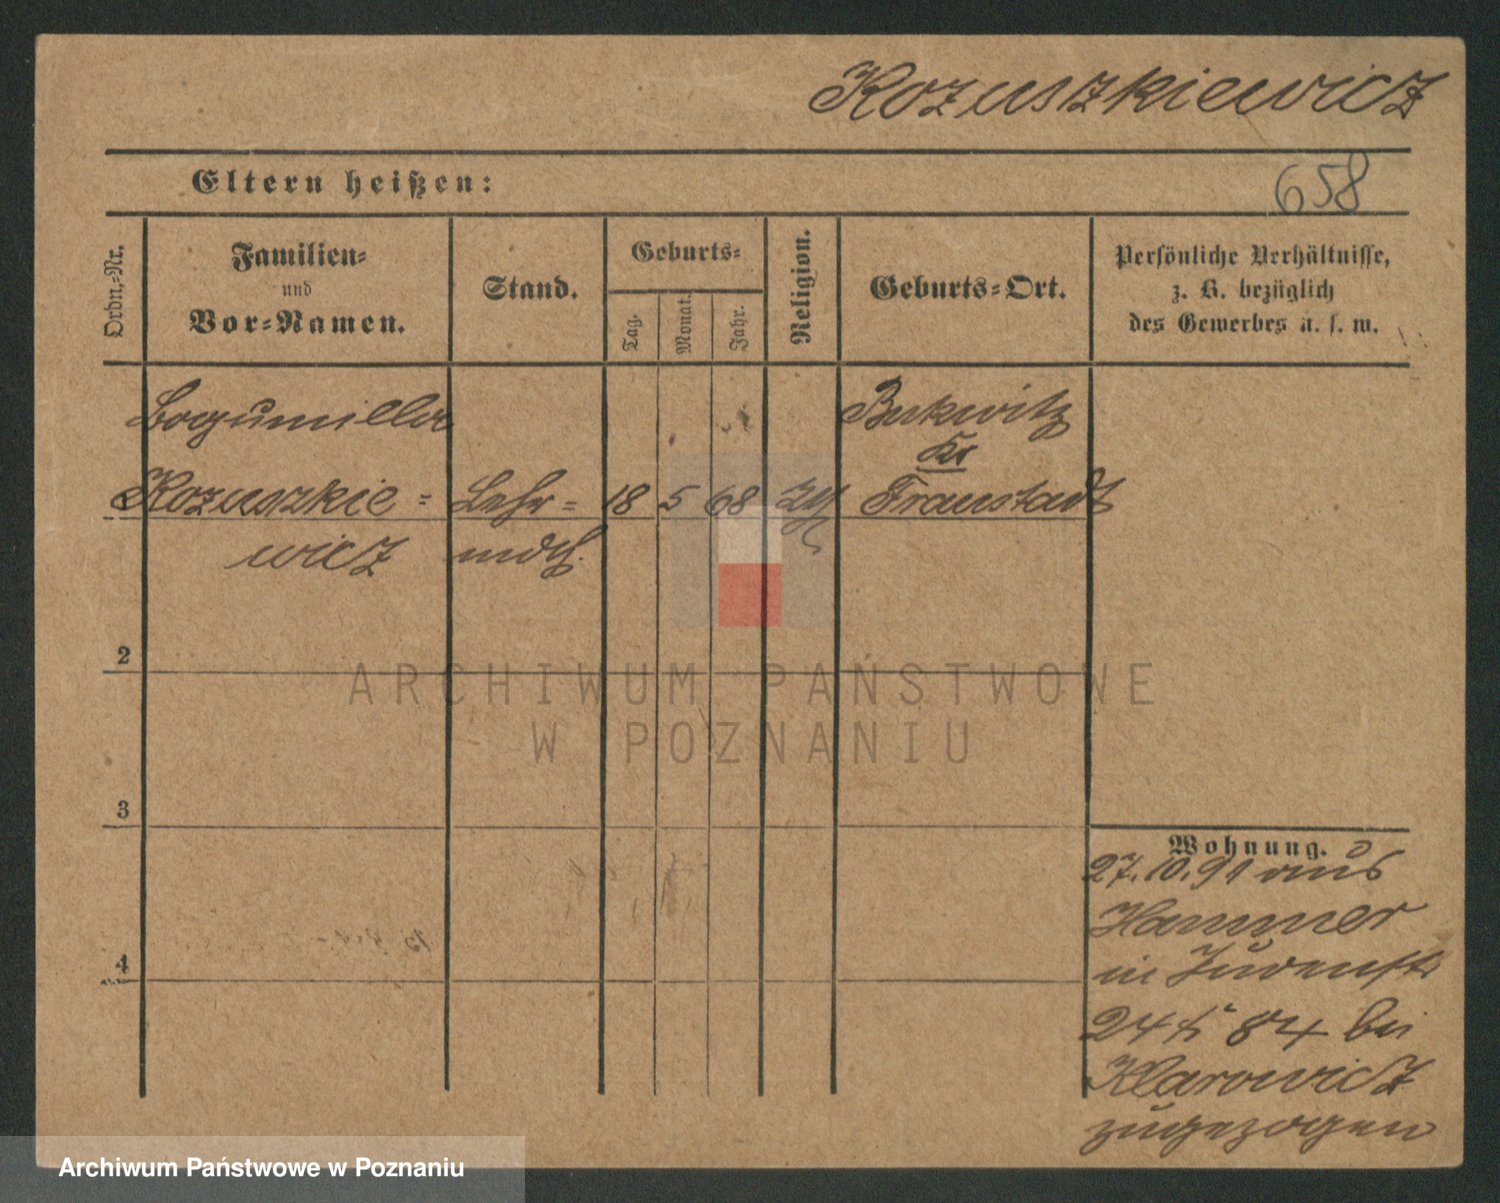 Kozuszkiewicz
Eltern heißen:
658
Ordn.-Nr.
Familien-
und
Vor-Namen.
Stand.
Geburts-
Tag.
Monat.
Jahr.
Religion.
Geburts-Ort.
Persönliche Verhältnisse,
z. B. bezüglich
des Gewerbes u. s. w.
Bogumilla
Kozuszkie=
wicz
Lehr=
mdch.
18
5
68
Bukwitz
Kr
Fraustadt
2
3
4
Wohnung.
27.10.91 aus
Hammer
in Judenstr
24 84 bei
Klarowicz
zugezogen
ARCHIWUM PAŃSTWOWE
W POZNANIU
Archiwum Państwowe w Poznaniu